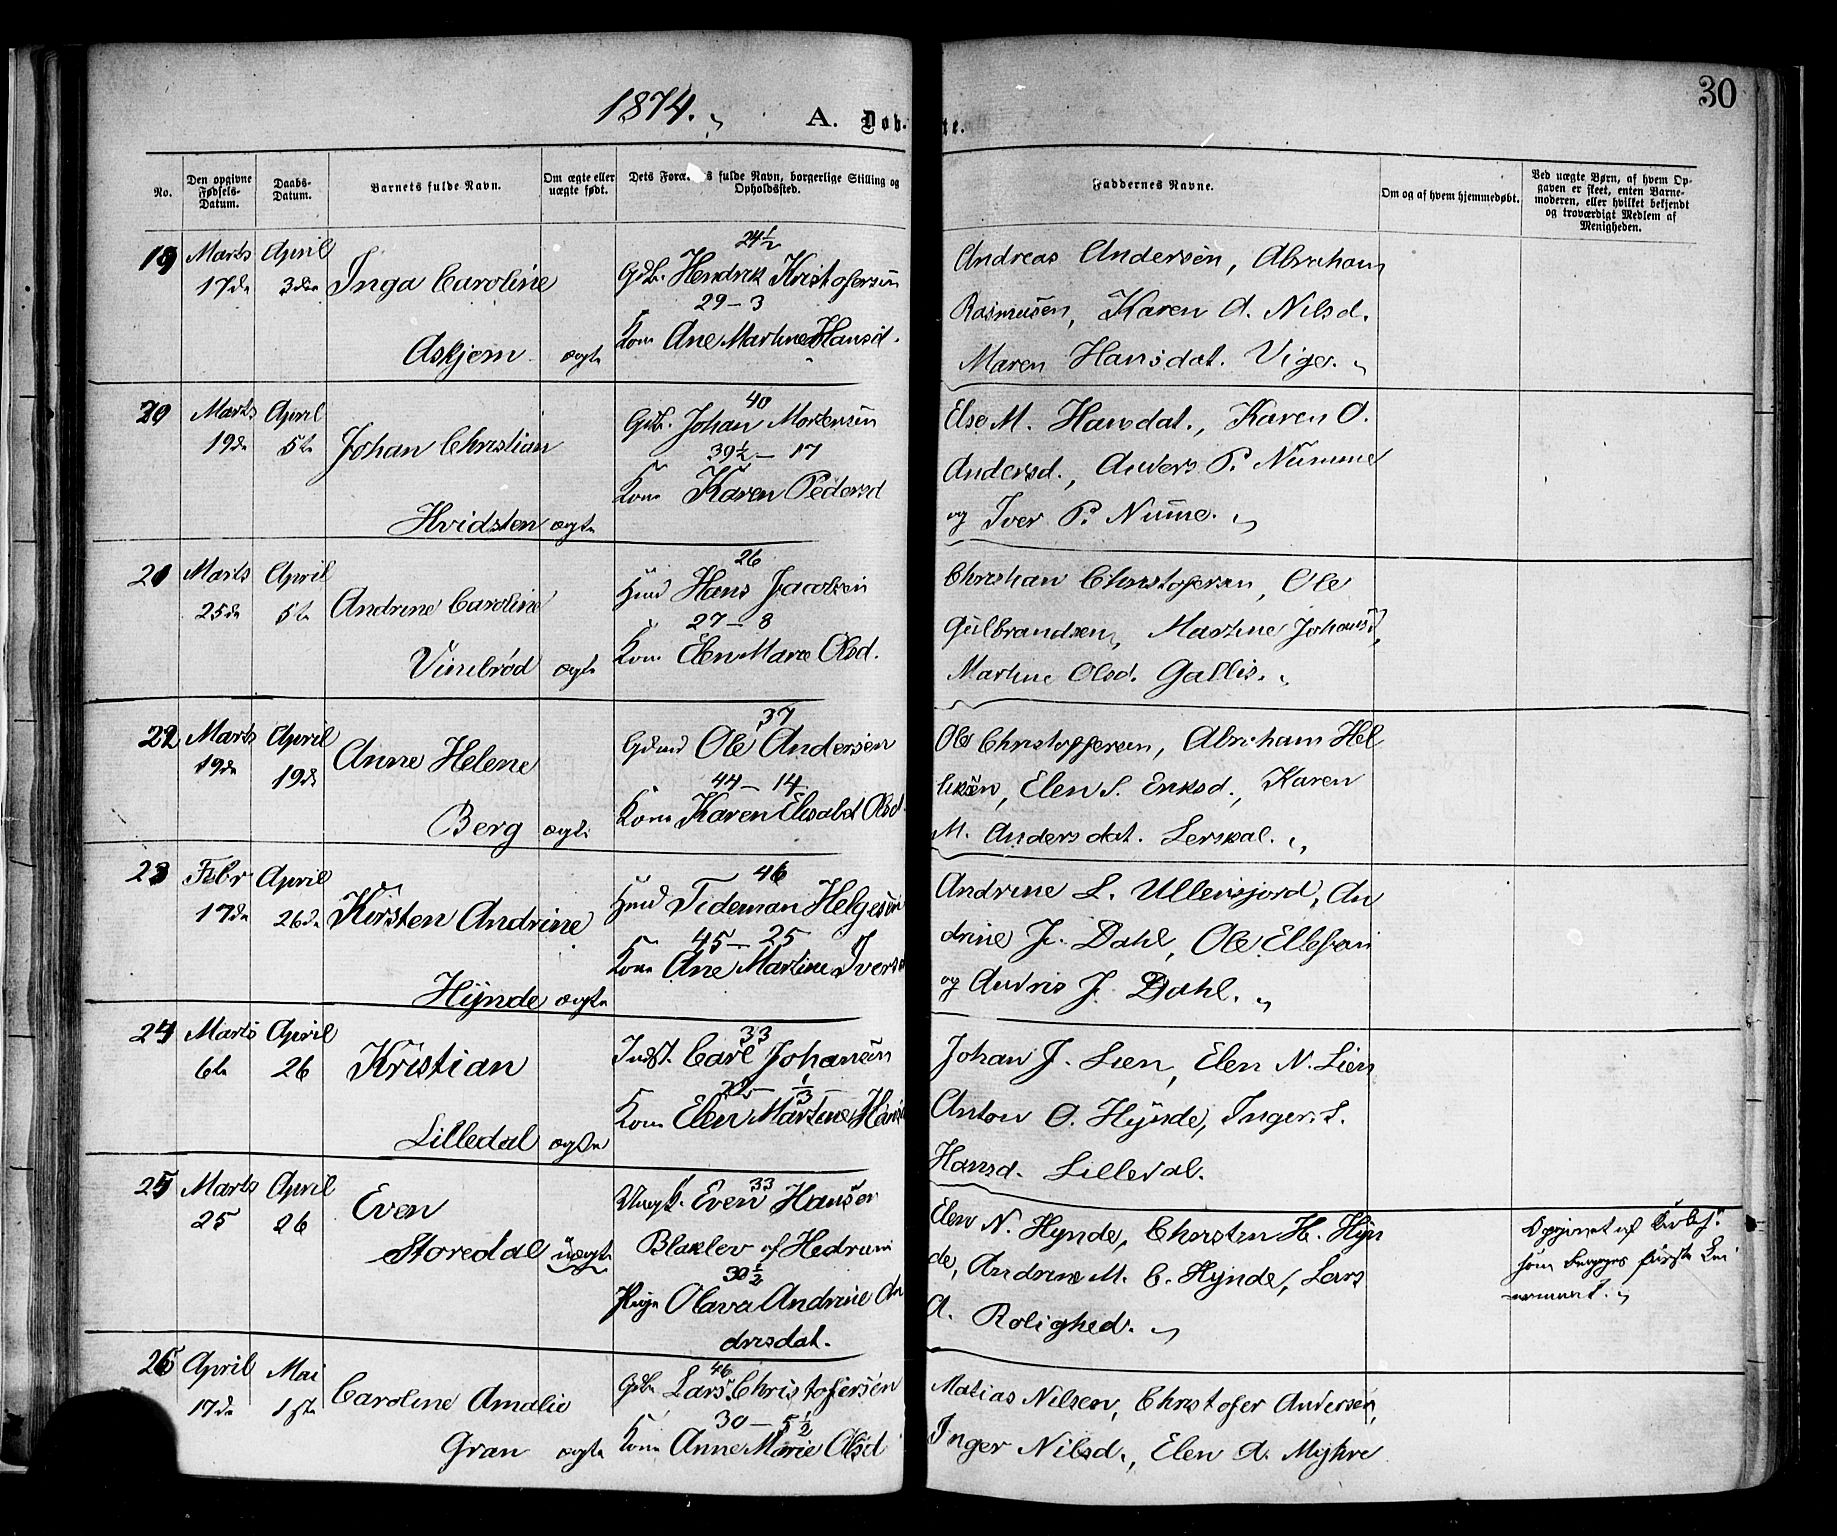 30
1874.
A. Døb- te.
No.
Den opgivne Fødsels-Datum.
Daabs-Datum.
Barnets fulde Navn.
Om ægte eller uægte født.
Dets Foræ s fulde Navn, borgerlige Stilling og Opholdssted.
Faddernes Navne.
Om og af hvem hjemmedøbt.
Ved uægte Børn, af hvem Op-
gaven er skeet, enten Barne-
moderen, eller hvilket bekjendt
og troværdigt Medlem af
Menigheden.
19 Marts 17de April 3die Inga Caroline
Askjem ægte
24½
Gdbr. Hendrik Kristofersen
29 – 3
Kone Ane Martine Hansd.
Andreas Andersen, Abraham
Rasmusen, Karen A. Nilsd.
Maren Hansdat. Viger.
20 Marts 19de April 5te Johan Christian
Hvidsten ægte
40
Gdbr. Johan Mortensen
39½ – 17
Kone Karen Pedersd
Else M. Hansdat., Karen O.
Andersd., Anders P. Numme
og Iver P. Numme.
21 Marts 25de April 5te Andrine Caroline
Vimbrød ægte
26
Hmd Hans Jacobsen
27 – 8
Kone Elen Marie Olsd.
Christian Christofersen, Ole
Gulbrandsen, Martine Johansd,
Martine Olsd. Gallis.
22 Marts 19de April 19de Anne Helene
Berg ægte
37
Gdmd Ole Andersen
44 – 14
Kone Karen Elisabet Olsd
Ole Christoffersen, Abraham Hel
liksen, Elen S. Eriksd., Karen
M. Andersdat. Lerskal.
23 Febr 17de April 26de Kirsten Andrine
Hynde ægte
46
Hmd Tideman Helgesen
45 – 25
Kone Ane Martine Iversd
Andrine L. Ullensjord, An
drine J. Dahl, Ole Ellefsen
og Andris J. Dahl.
24 Marts 6te April 26 Kristian
Lilledal ægte
33
Indst. Carl Johansen
Kone Elen Martine Hansd
Johan J. Lien, Elen N. Lien
Anton O. Hynde, Inger L.
Hansd. Lilledal.
25 Marts 25 April 26 Even
Storedal uægte
33
Ungk. Even Hansen
Blaklev af Hedrum
30½
Pige Olava Andrine An
drisdat.
Elen N. Hynde, Christen H. Hyn
de, Andrine M. C. Hynde, Lars
A. Rolighed.
Opgivet af
som første Lei
ermaal.
26 April 17de Mai 1ste Caroline Amalie
Gran ægte
46
Gdbr Lars Christofersen
30 – 5½
Kone Anne Marie Olsd
Matias Nilsen, Christofer Andersen,
Inger Nilsd., Elen A. Myhre